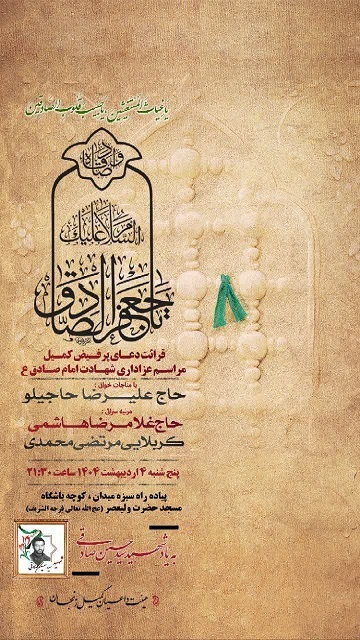 یا غیاث المستغیثین، یا حبیب قلوب الصادقین
السلام علیک
یا جعفر الصادق
قرائت دعای پر فیض کمیل
مراسم عزاداری شهادت امام صادق ع
با مناجات خوانی:
حاج علیرضا حاجیلو
مرثیه سرایی:
حاج غلامرضا هاشمی
کربلایی مرتضی محمدی
پنج شنبه ۴ اردیبهشت ۱۴۰۴ ساعت ۲۱:۳۰
پیاده راه سبزه میدان ، کوچه باشگاه
مسجد حضرت ولیعصر (عج الله تعالی فرجه الشریف)
به یاد شهید سید حسین صادقی
هیئت داعیان کمیل زنجان